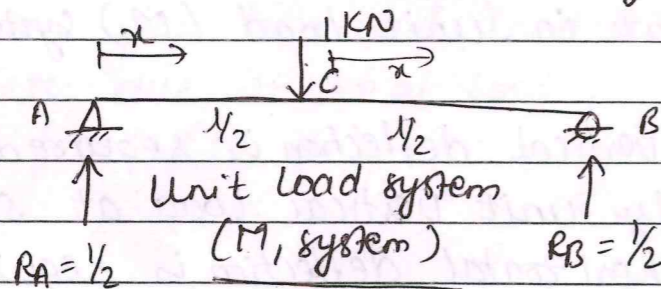 x
1 KN
C x
A 1/2 1/2 B
Unit Load system
(M, system)
RA = 1/2 RB = 1/2